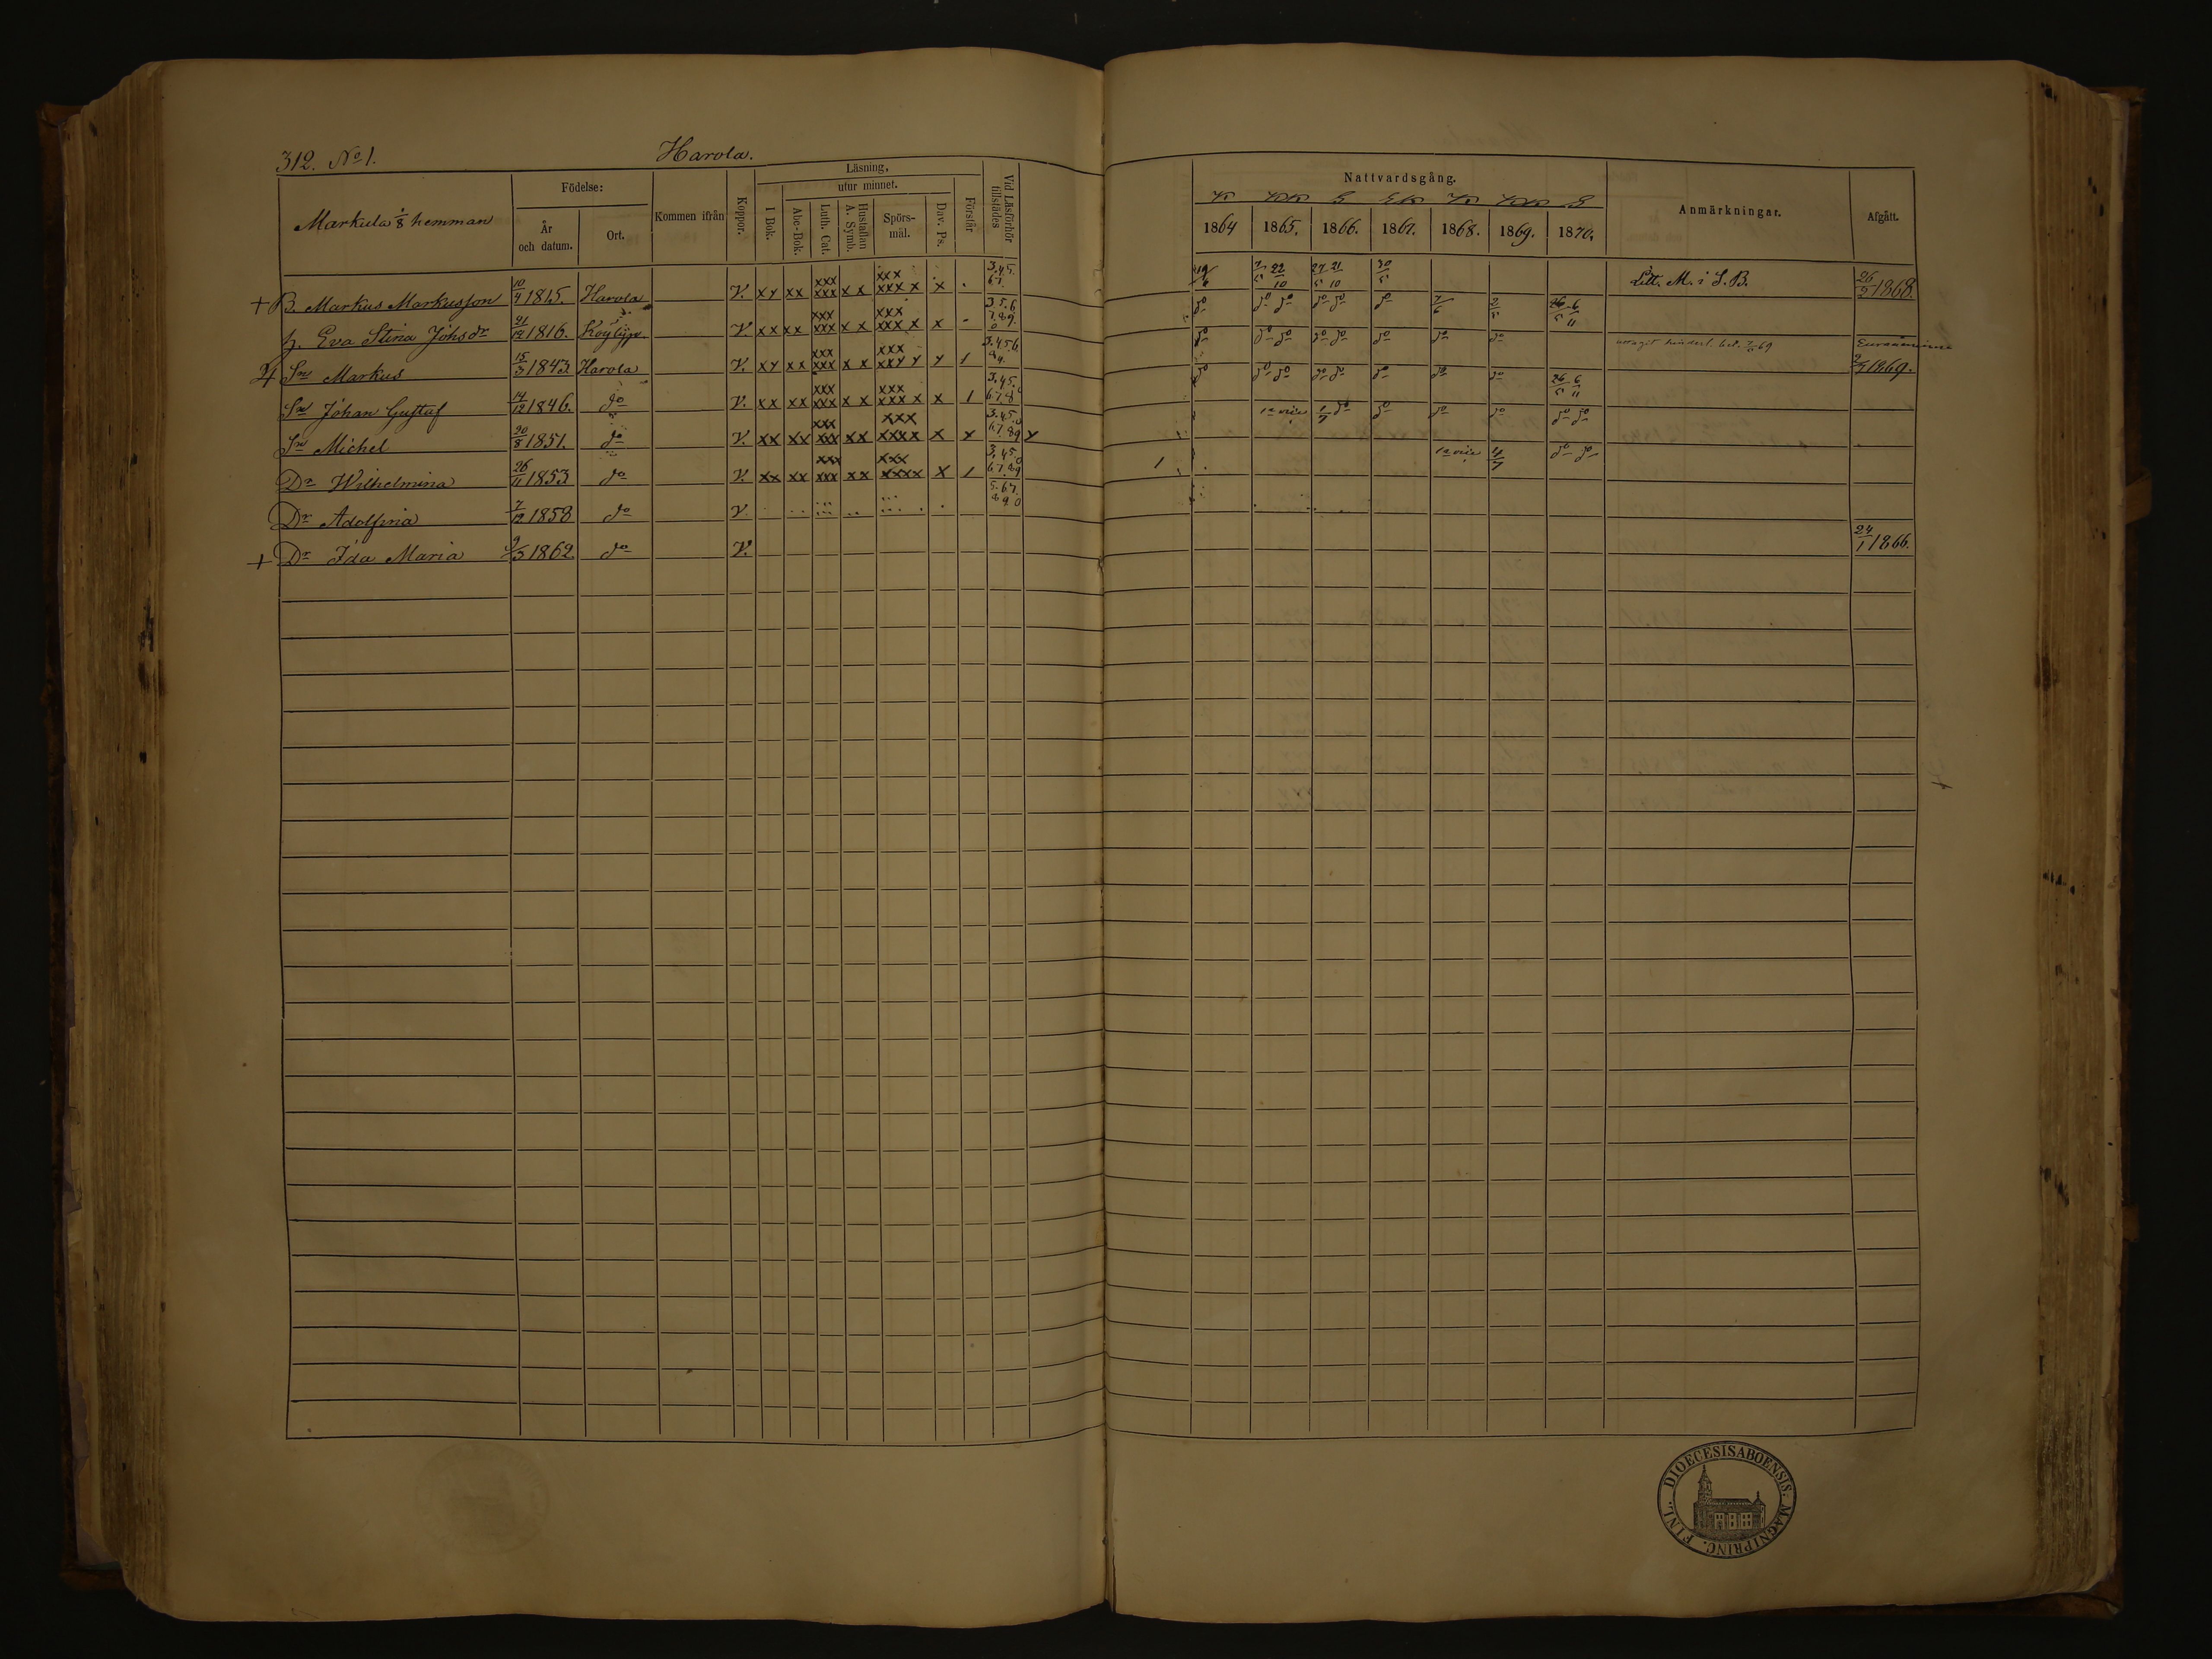 312. No 1. Harola.
Markula 1/8 hemman
Födelse:
År och datum.
Ort.
Kommen ifrån
Koppor.
Läsning,
utur minnet.
I Bok.
Abc-Bok.
Luth. Cat.
Hustaflan A. Symb.
Spörs-mål.
Dav. Ps.
Förstår
Vid Läsförhör tillstädes
Nattvardsgång.
1864 1865. 1866. 1867. 1868. 1869. 1870.
Anmärkningar.
Afgått.
+ B. Markus Markusson 10/9 1815. Harola V. xx xx xxx xxx x x xxx xxx x x 3.4.5. 6.7. 7/5 22/10 27/5 21/10 30/5 Litt. M. i S. B. 26/2 1868.
h. Eva Stina Johsdr 21/12 1816. V. xx xx xxx xxx x x xxx xxx x x 3.5.6. 7.8.9. 0 do do do do do do 7/6 2/5 26/5 6/11
Sn Markus 15/3 1843. Harola V. xx xx xxx xxx x x xxx 3.4.5.6. 8.9. do do do do do do do do hinderl. bet. 69 2/7 1869.
Sn Johan Gustaf 14/12 1846. do V. xx xx xxx xxx x x xxx xxx x x 1 3.4.5. 6.7.8. do do do do do do do do 26/5 6/11
Sn Michel 20/8 1851. do V. xx xx xxx xxx xx xxx xxxx x x 3.4.5. 6.7.8.9 1/7 do do do do do do
Dr Wilhelmina 26/11 1853 do V. xx xx xxx xxx xx xxx xxxx x 1 3.4.5. 6.7.8.9 1 4/7 do do
Dr Adolfina 7/12 1858 do V. 5.6.7. 8 9 0
+ Dr Ida Maria 9/3 1862. do V. 24/1 1866.
FINL. DIOECESIS ABOENSIS. MAGNI PRINC.